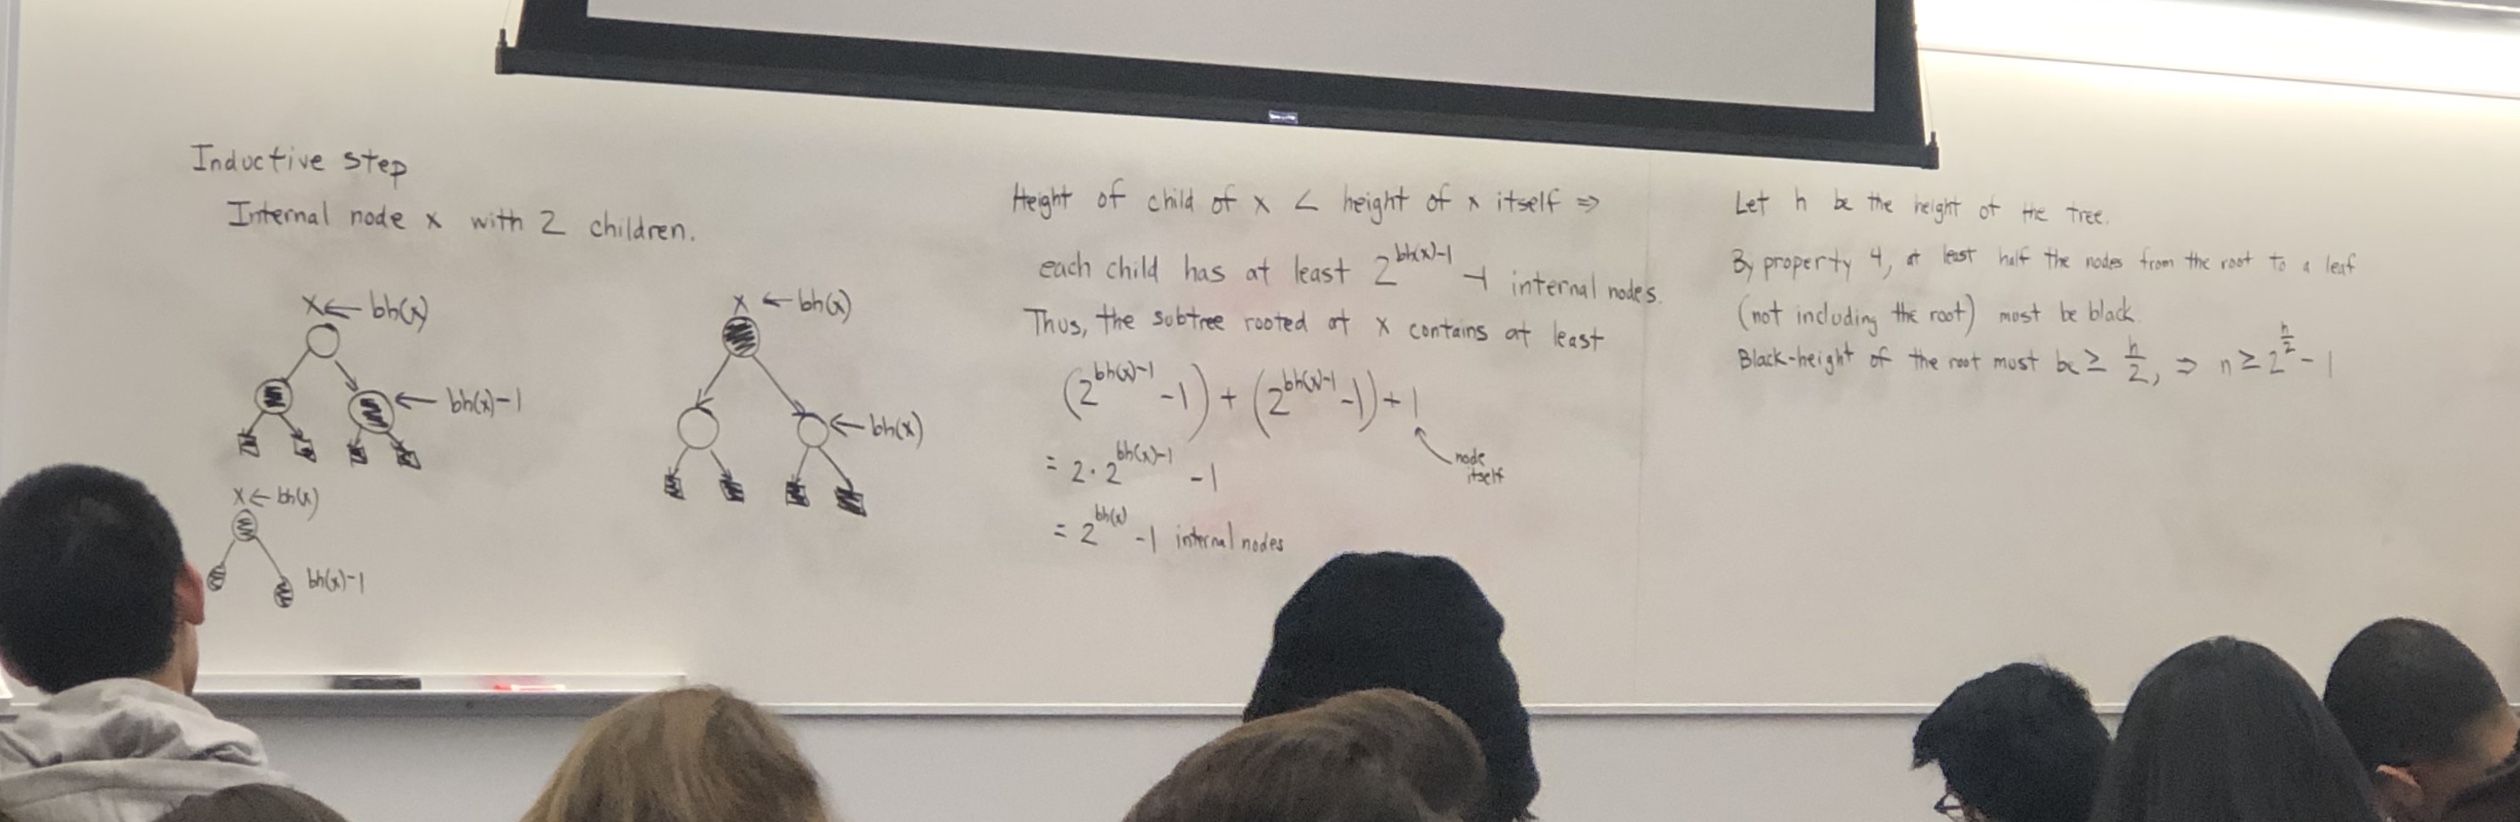 Inductive step
Internal node x with 2 children.
x ← bh(x)
← bh(x)-1
x ← bh(x)
bh(x)-1
x ← bh(x)
← bh(x)
Height of child of x < height of x itself ⇒
each child has at least 2^{bh(x)-1} -1 internal nodes.
Thus, the subtree rooted at x contains at least
(2^{bh(x)-1} -1) + (2^{bh(x)-1} -1) + 1
node
itself
= 2 · 2^{bh(x)-1} -1
= 2^{bh(x)} -1 internal nodes
Let h be the height of the tree.
By property 4, at least half the nodes from the root to a leaf
(not including the root) must be black.
Black-height of the root must be ≥ h/2, ⇒ n ≥ 2^{h/2} - 1